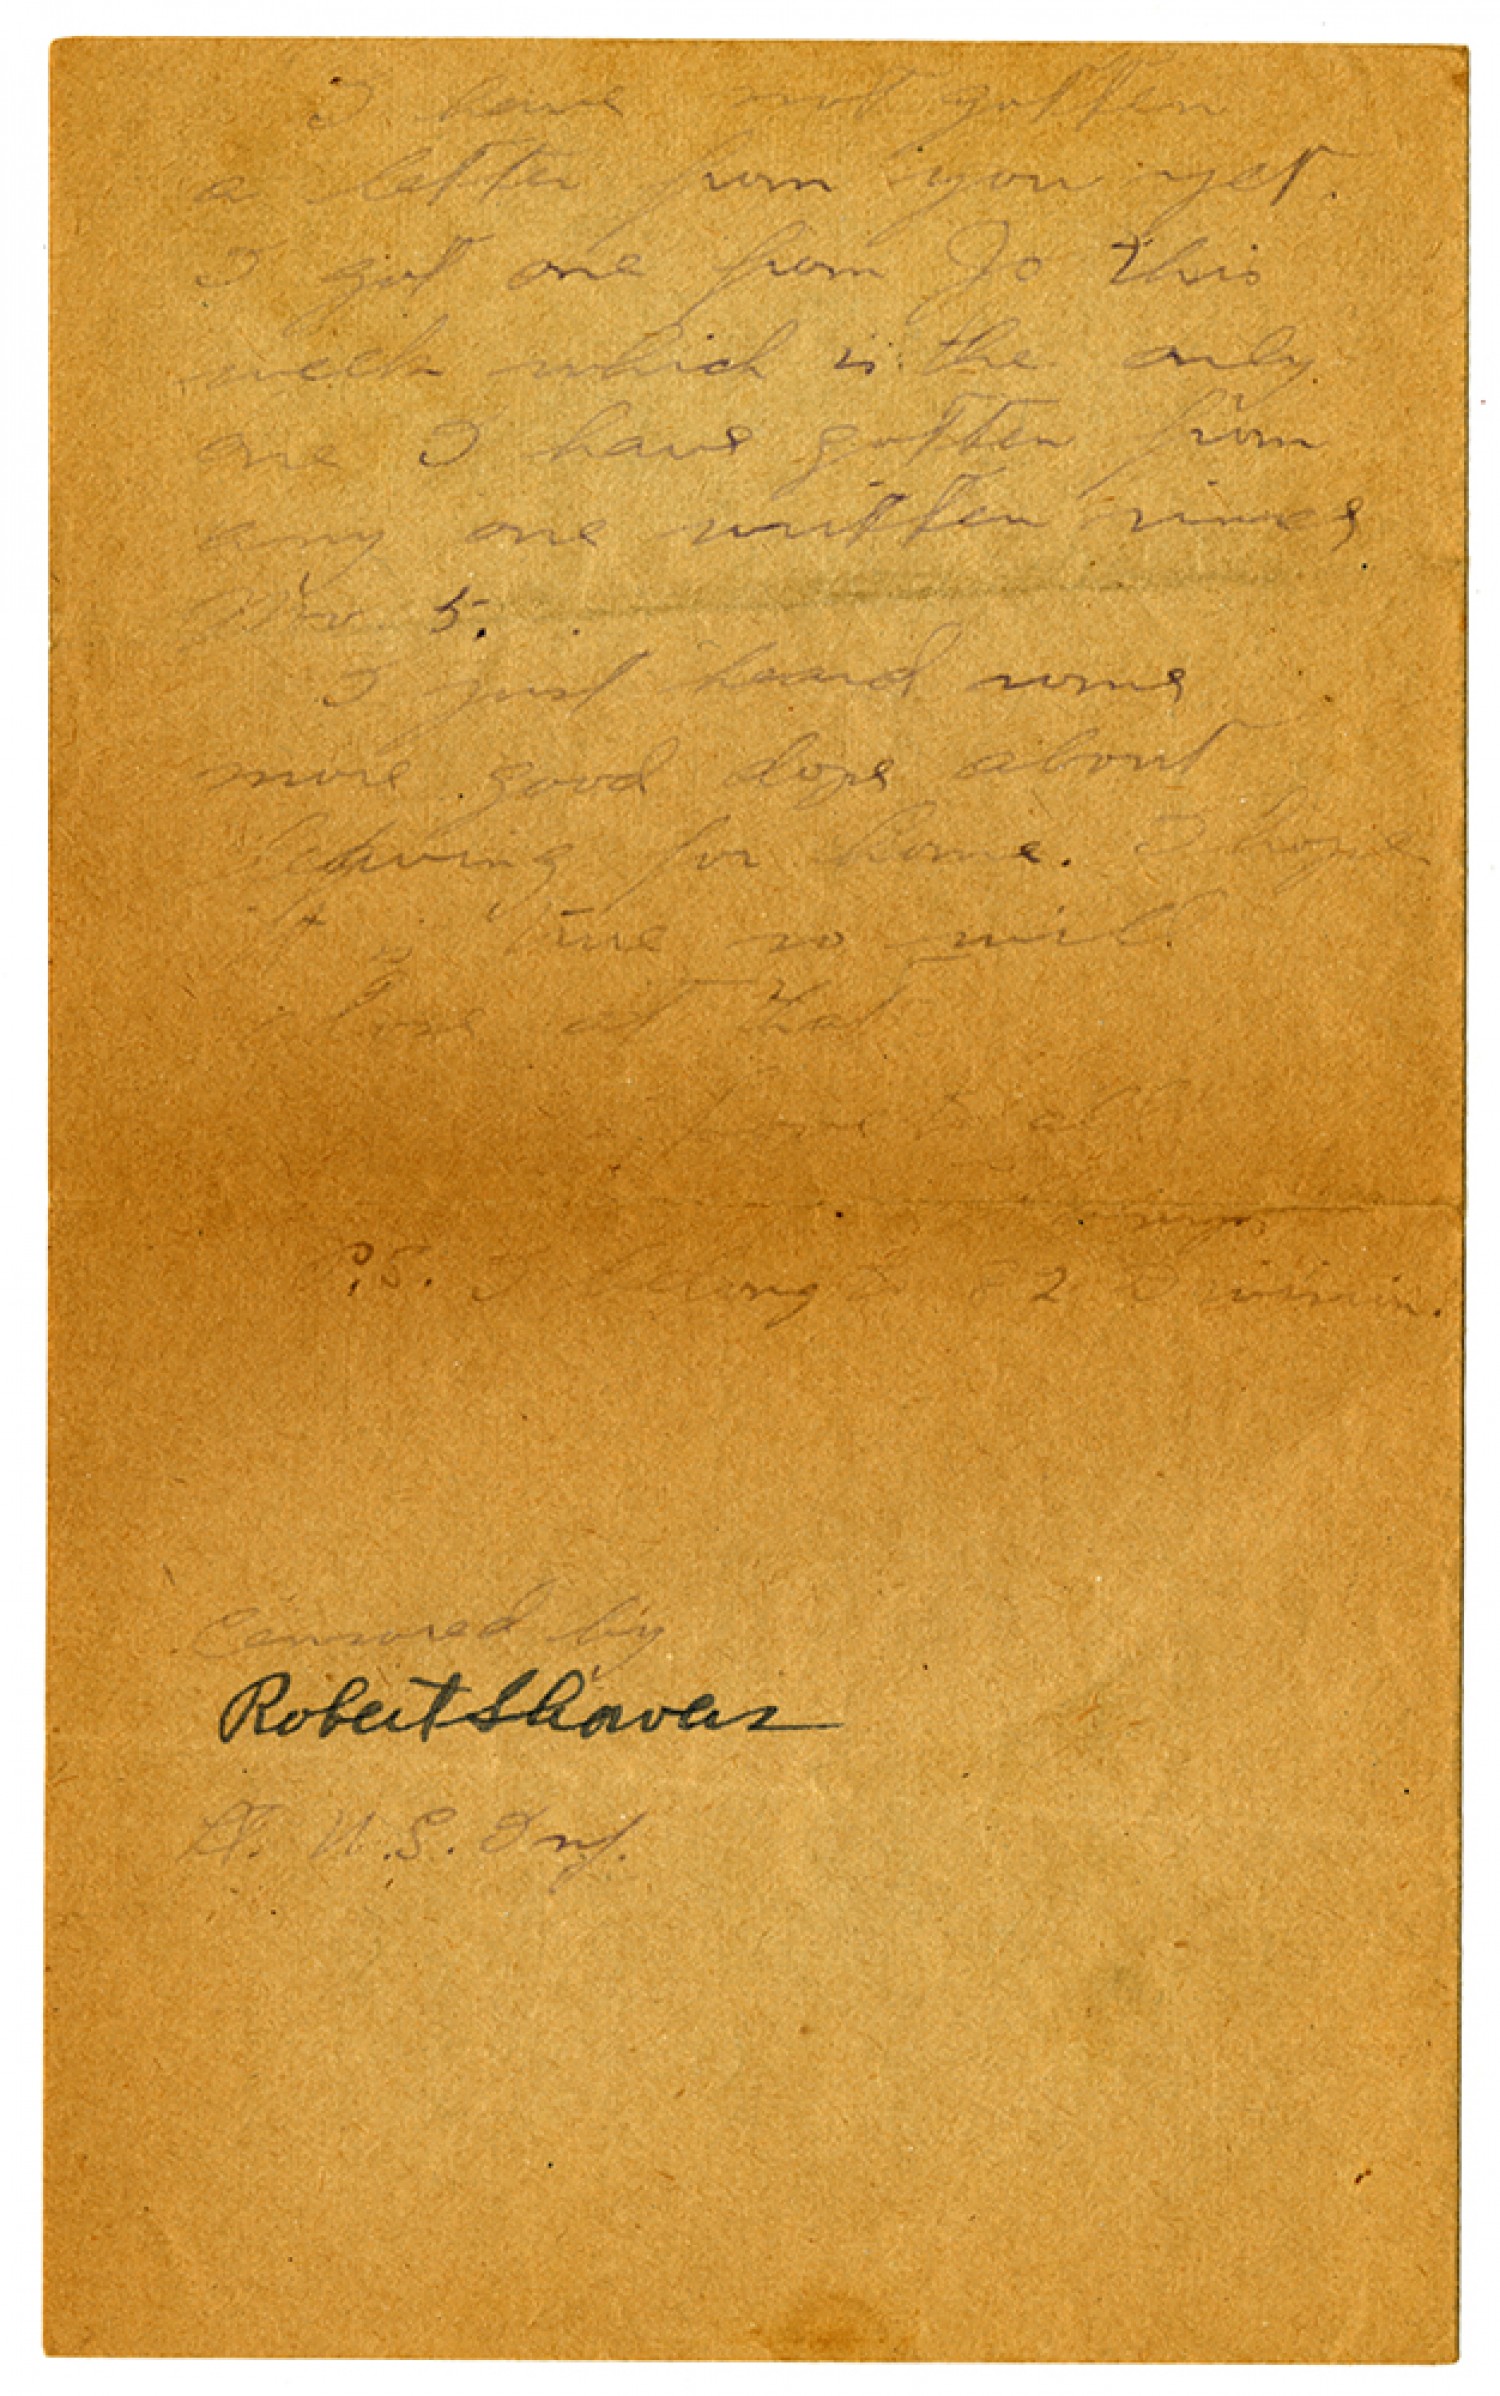 I have not gotten
a letter from you yet.
I got one from Jo this
week which is the only
one I have gotten from
any one written since
Nov. 5.
I just heard some
more good dope about
leaving for home. I hope
it is true so will
close at that
Love to all
P.S. I belong to 82 Division.
Censored by
Robert Shavers
Lt. U.S. Inf.